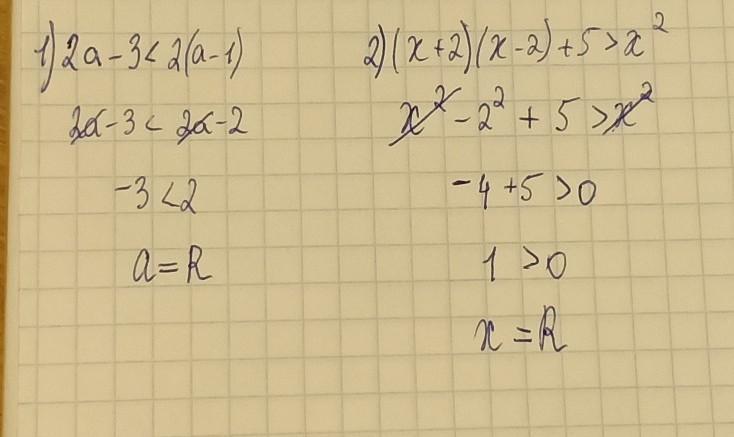 1) 2a - 3 < 2(a - 1)
2a - 3 < 2a - 2
-3 < 2
a = R
2) (x + 2)(x - 2) + 5 > x²
x² - 2² + 5 > x²
-4 + 5 > 0
1 > 0
x = R